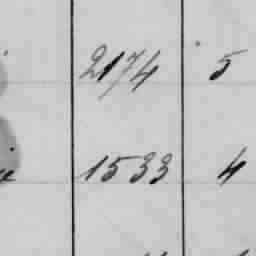 2174 5
1533 4